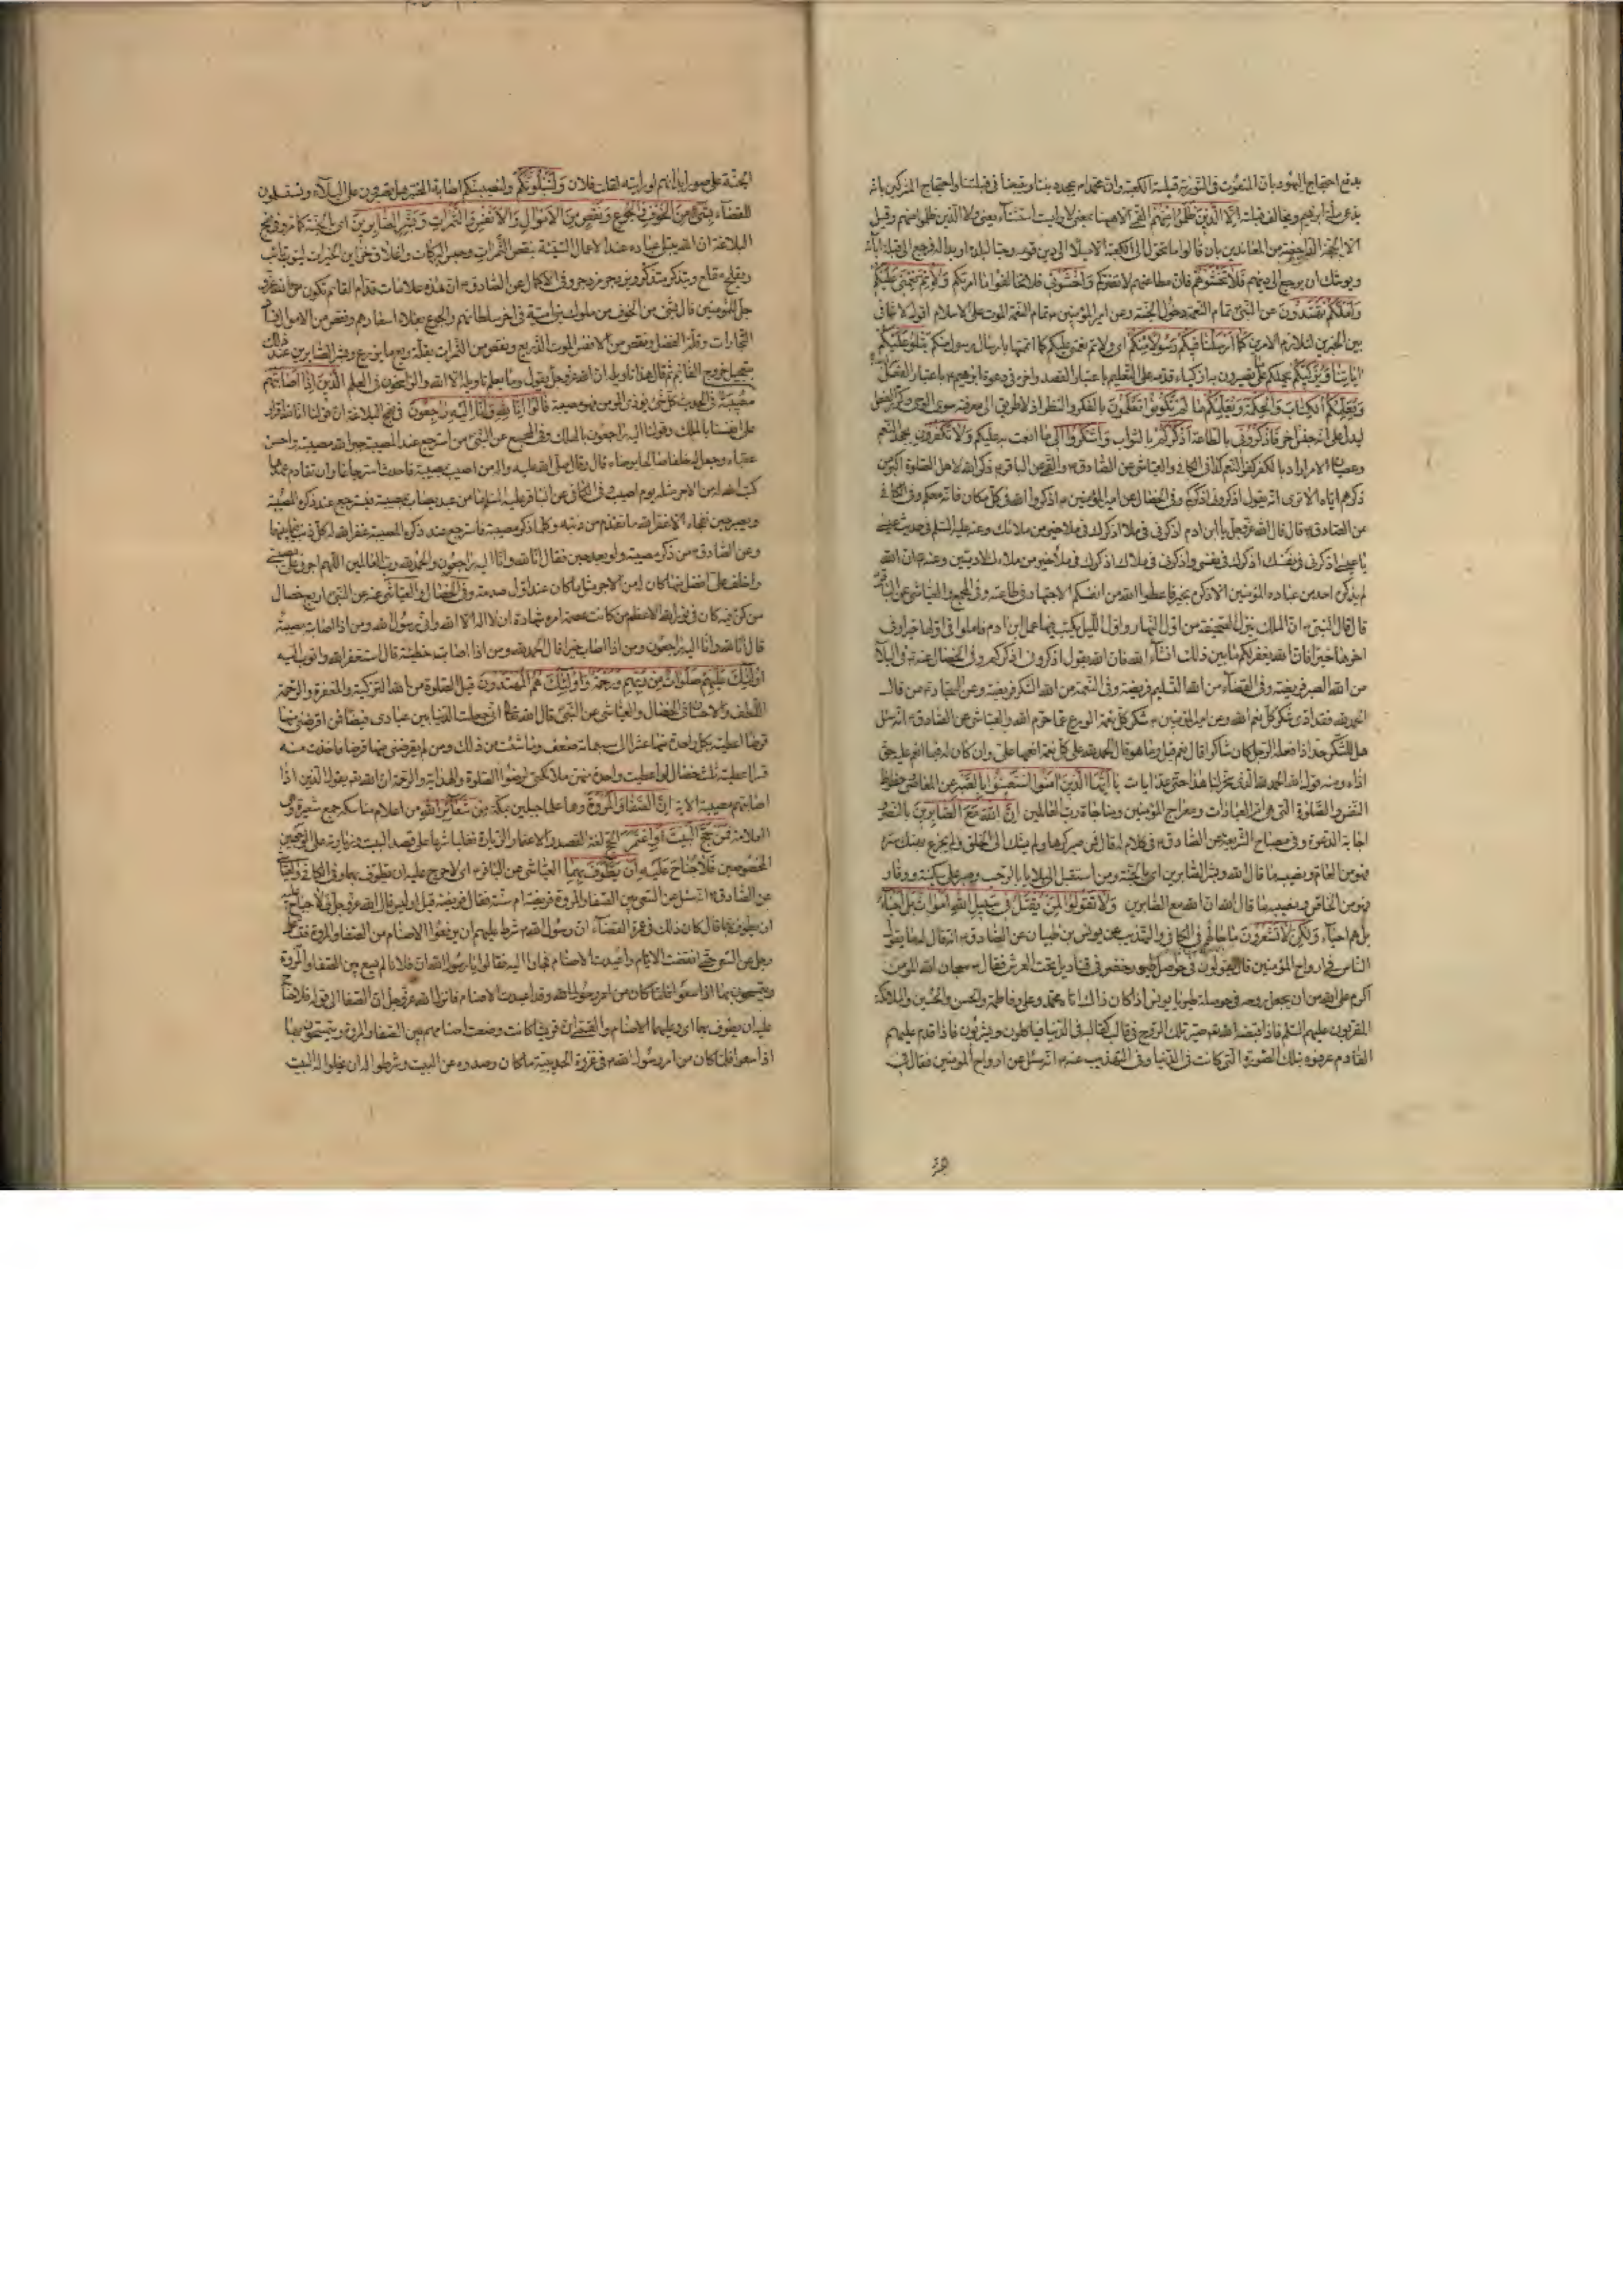 يدفع احتجاج اليهود بان المنعوت في التورية قبلته الكعبة وان محمدا يجحد ديننا ويتبعنا في قبلتنا واحتجاج المشركين بانه
يدعي ملة ابراهيم ويخالف قبلته الا الذين ظلموا منهم القمي الا هيهنا بمعنى لا وليست استثناء يعني ولا الذين ظلموا منهم وقيل
الا الحجة الداحضة من المعاندين بان قالوا ما تحول الى الكعبة الا ميلا الى دين قومه وحبا لبلده او بدا له فرجع الى قبلة آبائه
ويوشك ان يرجع الى دينهم فلا تخشوهم فان مطاعنهم لا تضركم واخشوني فلا تخالفوا ما امرتكم به ولاتم نعمتي عليكم
ولعلكم تهتدون عن النبي تمام النعمة دخول الجنة وعن امير المؤمنين تمام النعمة الموت على الاسلام اقول لا تنافي
بين الخبرين لتلازم الامرين كما ارسلنا فيكم رسولا منكم اي ولاتم نعمتي عليكم كما اتممتها بارسال رسول منكم يتلو عليكم
اياتنا ويزكيكم يحملكم على ما تصيرون به ازكياء قدمه على التعليم باعتبار القصد واخره في دعوة ابراهيم باعتبار الفعل
ويعلمكم الكتاب والحكمة ويعلمكم ما لم تكونوا تعلمون بالفكر والنظر اذ لا طريق الى معرفته سوى الوحي وكرر الفعل
ليدل على انه جنس اخر فاذكروني بالطاعة اذكركم بالثواب واشكروا لي ما انعمت به عليكم ولا تكفرون بجحد النعم
وعصيان الامر اراد بالكفر كفر النعم كذا في الكافي والعياشي عن الصادق والقمي عن الباقر ذكر الله لاهل الصلوة اكبر من
ذكرهم اياه الا ترى انه يقول اذكروني اذكركم وفي الخصال عن امير المؤمنين اذكروا الله في كل مكان فانه معكم وفي الكافي
عن الصادق قال قال الله عز وجل يا ابن ادم اذكرني في ملاء اذكرك في ملاء خير من ملائك وعنه عليه السلم في حديث عيسى
يا عيسى اذكرني في نفسك اذكرك في نفسي واذكرني في ملاك اذكرك في ملاء خير من ملاء الادميين وعنه ان الله
لم يذكره احد من عباده المؤمنين الا ذكره بخير فاعطوا الله من انفسكم الاجتهاد في طاعته وفي المجمع والعياشي عن الباقر
قال قال النبي ان الملك ينزل الصحيفة من اول النهار واول الليل يكتب فيها عمل ابن ادم فاملوا في اولها خيرا وفي
اخرها خيرا فان الله يغفر لكم ما بين ذلك انشاء الله فان الله يقول اذكروني اذكركم وفي الخصال عنه في البلاء
من الله الصبر فريضة وفي القضاء من الله التسليم فريضة وفي النعمة من الله الشكر فريضة وعن السجاد من قال
الحمد لله فقد ادى شكر كل نعم الله وعن امير المؤمنين شكر كل نعمة الورع عما حرم الله والعياشي عن الصادق انه سئل
هل للشكر حد اذا فعله الرجل كان شاكرا قال نعم قيل وما هو قال الحمد لله على كل نعمة انعمها علي وان كان له فيما انعم عليه حق
اداه ومنه قول الله الحمد لله الذي سخر لنا هذا حتى عد ايات يا ايها الذين امنوا استعينوا بالصبر عن المعاصي وحظوظ
النفس والصلوة التي هي ام العبادات ومعراج المؤمنين ومناجاة رب العالمين ان الله مع الصابرين بالنصر
اجابة الدعوة وفي مصباح الشريعة عن الصادق في كلام له قال فمن صبر كرها ولم يشك الى الخلق ولم يجزع بهتك ستره
فهو من العام ونصيبه ما قال الله وبشر الصابرين اي بالجنة ومن استقبل البلايا بالرحب وصبر على سكينة ووقار
فهو من الخاص ونصيبه ما قال الله ان الله مع الصابرين ولا تقولوا لمن يقتل في سبيل الله اموات بل احياء
بل هم احياء ولكن لا تشعرون ما حالهم في الكافي والتهذيب عن يونس بن ظبيان عن الصادق انه قال له ما يقول
الناس في ارواح المؤمنين قال يقولون في حواصل طيور خضر في قناديل تحت العرش فقال سبحان الله المؤمن
اكرم على الله من ان يجعل روحه في حوصلة طير يا يونس اذا كان ذلك اتاه محمد وعلي وفاطمة والحسن والحسين والملائكة
المقربون عليهم السلم فاذا قبضه الله صير تلك الروح في قالب كقالبه في الدنيا فياكلون ويشربون فاذا قدم عليهم
القادم عرفوه بتلك الصورة التي كانت في الدنيا وفي التهذيب عنه انه سئل عن ارواح المؤمنين فقال في
الجنة على صور ابدانهم لو رايته لقلت فلان ولنبلونكم ولنصيبنكم اصابة المختبر هل تصبرون على البلاء وتستسلمون
للقضاء بشيء من الخوف والجوع ونقص من الاموال والانفس والثمرات وبشر الصابرين اي بالجنة كما مر وفي نهج
البلاغة ان الله يبتلي عباده عند الاعمال السيئة بنقص الثمرات وحبس البركات واغلاق خزاين الخيرات ليتوب تائب
ويقلع مقلع ويتذكر متذكر ويزدجر مزدجر وفي الاكمال عن الصادق ان هذه علامات قدام القائم تكون من الله عز و
جل للمؤمنين قال بشيء من الخوف من ملوك بني امية في اخر سلطانهم والجوع بغلاء اسعارهم ونقص من الاموال فساد
التجارات وقلة الفضل ونقص من الانفس الموت الذريع ونقص من الثمرات بقلة ريع ما يزرع وبشر الصابرين عند ذلك
بتعجيل خروج القائم ثم قال هذا تاويله ان الله عز وجل يقول وما يعلم تاويله الا الله والراسخون في العلم الذين اذا اصابتهم
مصيبة في الحديث كل شيء يؤذي المؤمن فهو مصيبة قالوا انا لله وانا اليه راجعون في نهج البلاغة ان قولنا انا لله اقرار
على انفسنا بالملك وقولنا اليه راجعون بالهلك وفي المجمع عن النبي من استرجع عند المصيبة جبر الله مصيبته واحسن
عقباه وجعل له خلفا صالحا يرضاه قال وقال صلى الله عليه واله من اصيب بمصيبة فاحدث استرجاعا وان تقادم عهدها
كتب الله له من الاجر مثله يوم اصيب وفي الكافي عن الباقر عليه السلم ما من عبد يصاب بمصيبة فيسترجع عند ذكره المصيبة
ويصبر حين تفجاه الا غفر الله ما تقدم من ذنبه وكلما ذكر مصيبة فاسترجع عند ذكره المصيبة غفر الله له كل ذنب فيما بينهما
وعن الصادق من ذكر مصيبته ولو بعد حين فقال انا لله وانا اليه راجعون والحمد لله رب العالمين اللهم اجرني على مصيبتي
واخلف علي افضل منها كان له من الاجر مثل ما كان عند اول صدمة وفي الخصال والعياشي عنه عن النبي اربع خصال
من كن فيه كان في نور الله الاعظم من كانت عصمة امره شهادة ان لا اله الا الله واني رسول الله ومن اذا اصابته مصيبة
قال انا لله وانا اليه راجعون ومن اذا اصاب خيرا قال الحمد لله ومن اذا اصاب خطيئة قال استغفر الله واتوب اليه
اولئك عليهم صلوات من ربهم ورحمة واولئك هم المهتدون قيل الصلوة من الله التزكية والمغفرة والرحمة
اللطف والاحسان في الخصال والعياشي عن النبي قال الله تعالى اني جعلت الدنيا بين عبادي فيضا فمن اقرضني منها
قرضا اعطيته بكل واحدة منها عشرا الى سبعمائة ضعف وما شئت من ذلك ومن لم يقرضني منها قرضا فاخذت منه
قسرا اعطيته ثلث خصال لو اعطيت واحدة منهن ملائكتي لرضوا الصلوة والهداية والرحمة ان الله يقول الذين اذا
اصابتهم مصيبة الاية ان الصفا والمروة وهما علما جبلين بمكة من شعائر الله من اعلام مناسكه جمع شعيرة وهي
العلامة فمن حج البيت او اعتمر الحج لغة القصد والاعتمار الزيارة فغلبا شرعا على قصد البيت وزيارته على الوجهين
المخصوصين فلا جناح عليه ان يطوف بهما العياشي عن الباقر اي لا حرج عليه ان يطوف بهما وفي الكافي والعياشي
عن الصادق انه سئل عن السعي بين الصفا والمروة فريضة ام سنة فقال فريضة قيل اوليس قال الله عز وجل فلا جناح عليه
ان يطوف بهما قال كان ذلك في عمرة القضاء ان رسول الله شرط عليهم ان يرفعوا الاصنام من الصفا والمروة فتشاغل
رجل عن السعي حتى انقضت الايام واعيدت الاصنام فجاؤا اليه فقالوا يا رسول الله ان فلانا لم يسع بين الصفا والمروة
عليه ان يطوف بهما اي وعليهما الاصنام والقمي ان قريشا كانت وضعت اصنامهم بين الصفا والمروة ويتمسحون بها
اذا سعوا فلما كان من امر رسول الله في غزوة الحديبية ما كان وصدوه عن البيت وشرطوا له ان يخلوا له البيت